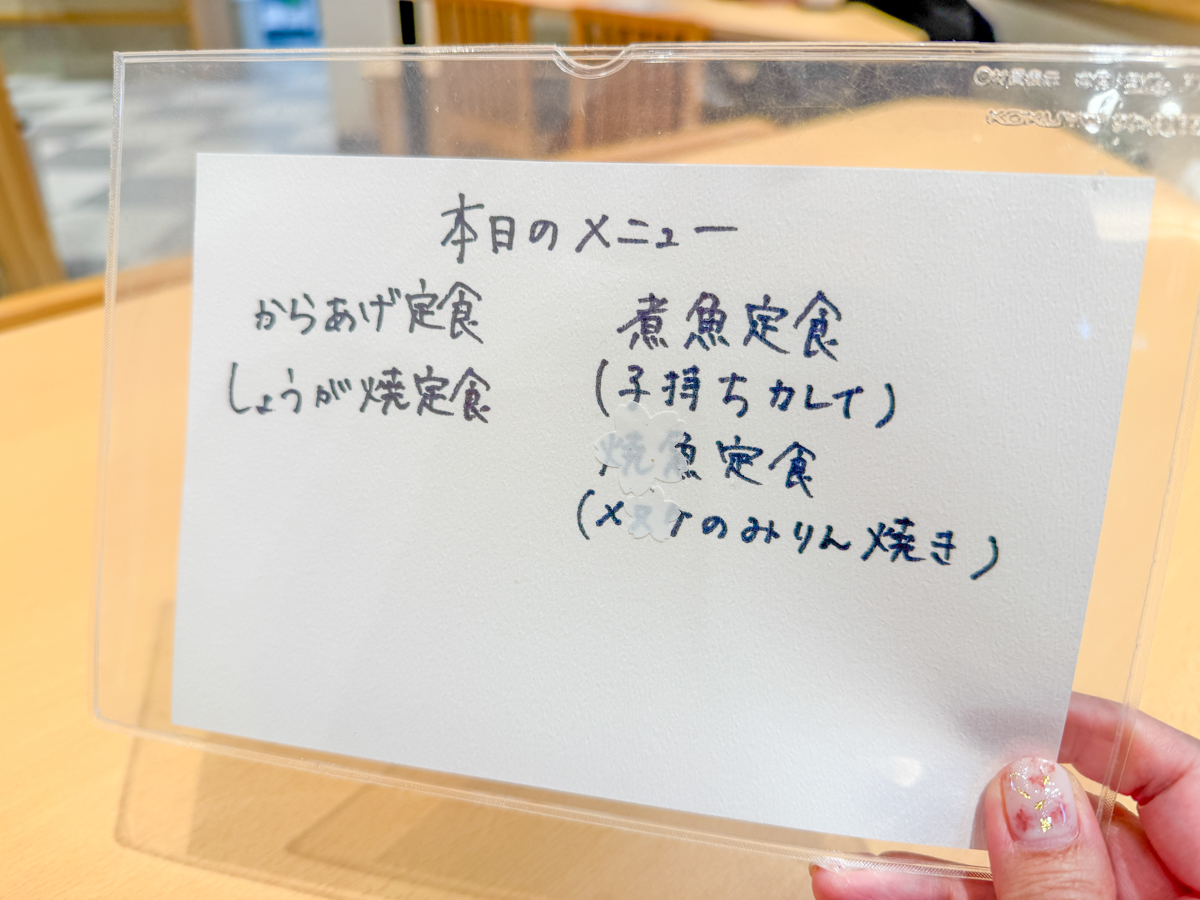 本日のメニュー
からあげ定食
しょうが焼定食
煮魚定食
(子持ちカレイ)
焼魚定食
(メヌケのみりん焼き)
KOKUYO